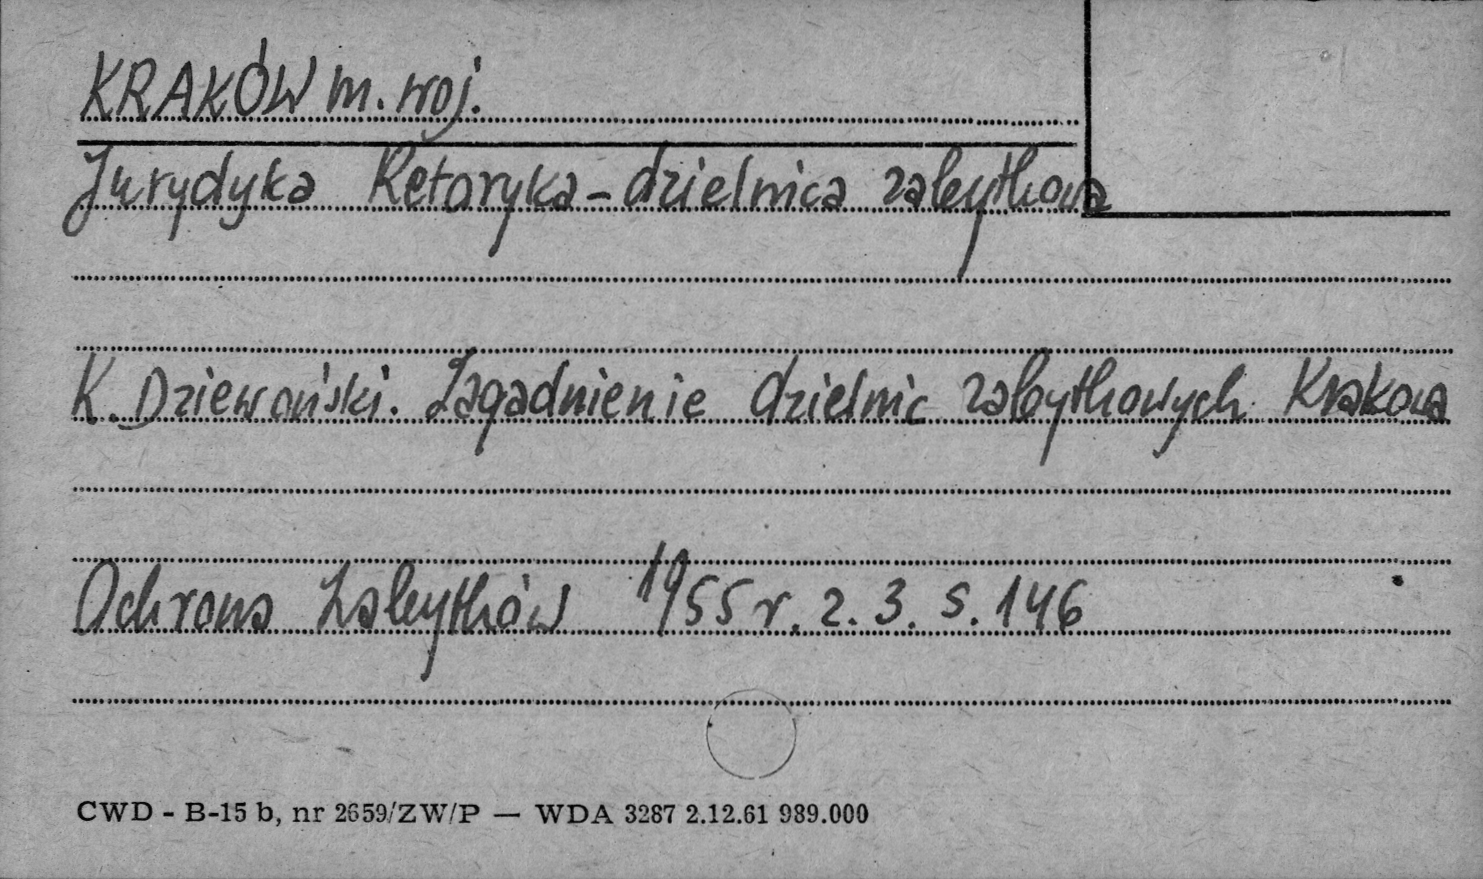 KRAKÓW m. woj.
Jurydyka Retoryka - dzielnica zabytkowa
K. Dziewoński. Zagadnienie dzielnic zabytkowych Krakowa
Ochrona Zabytków 1955 r. z. 3. s. 146
CWD - B-15 b, nr 2659/ZW/P — WDA 3287 2.12.61 989.000